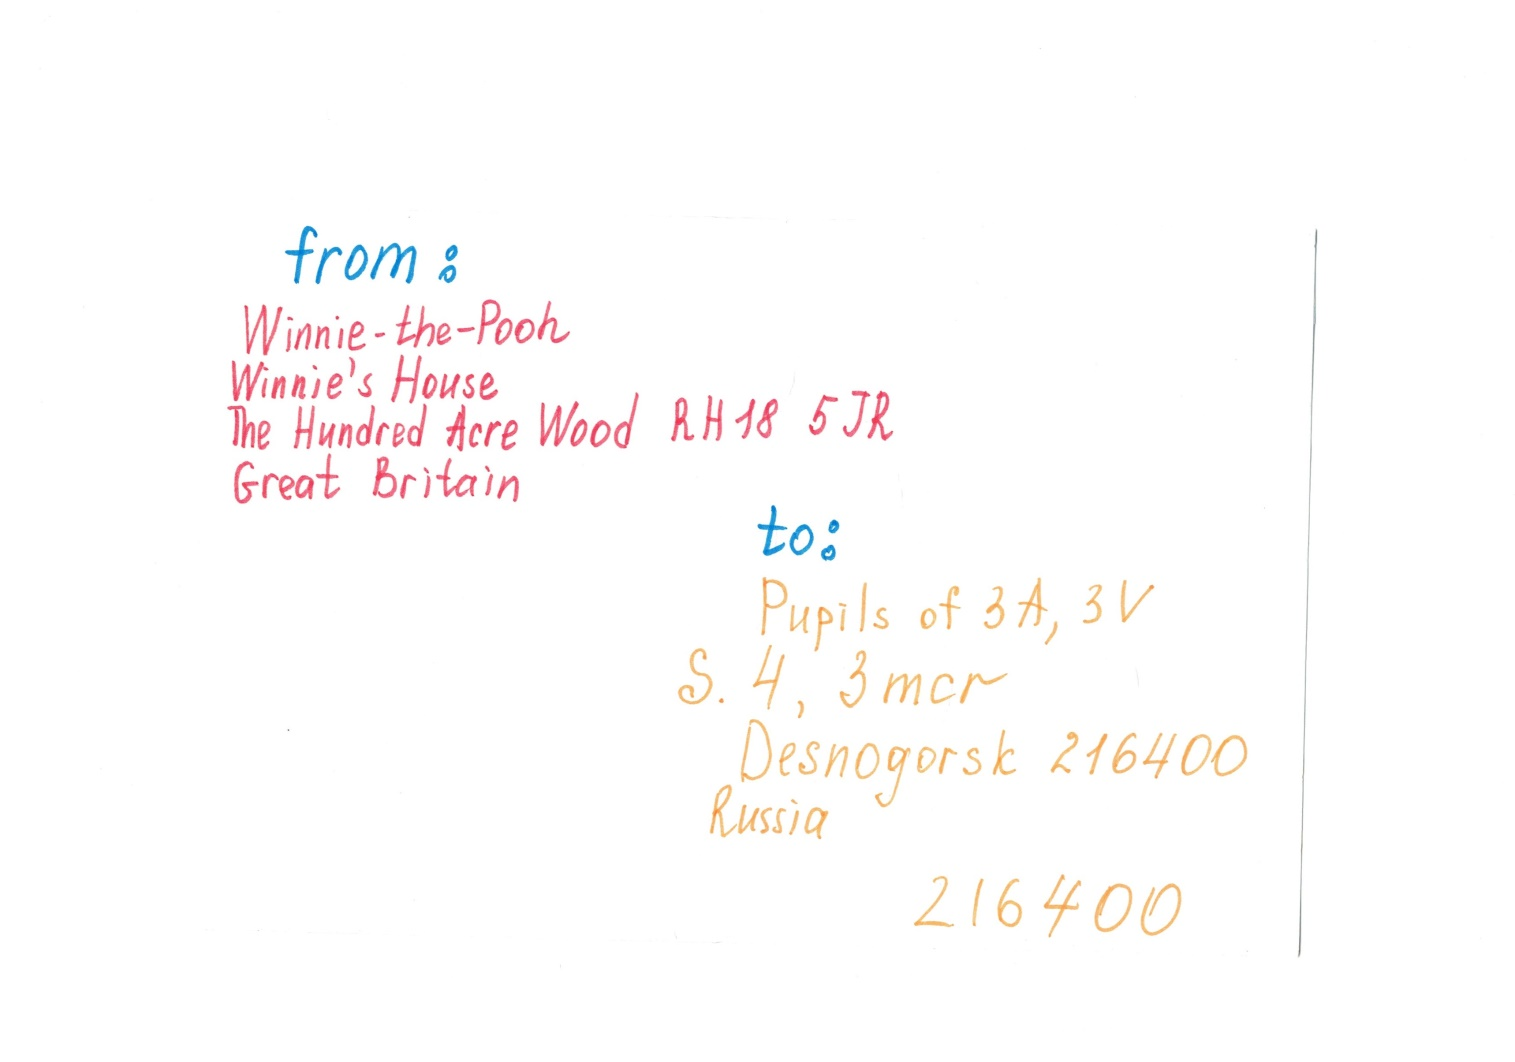 from:
Winnie-the-Pooh
Winnie's House
The Hundred Acre Wood RH18 5JR
Great Britain
to:
Pupils of 3A, 3V
S. 4, 3mcr
Desnogorsk 216400
Russia
216400